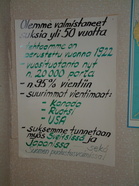 Olemme valmistaneet
suksia yli 50 vuotta
Tehtaamme on
perustettu vuonna 1922
- vuosituotanto nyt
n. 20 000 paria
- n. 95% vientiin
- suurimmat vientimaat:
- Kanada
- Ruotsi
- USA
- suksemme tunnetaan
myös Sveitsissä ja
Japanissa